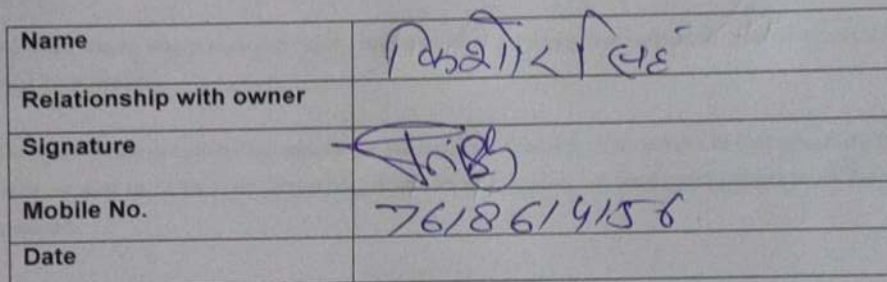 Name किशोर सिंह
Relationship with owner
Signature
Mobile No. 7618614156
Date